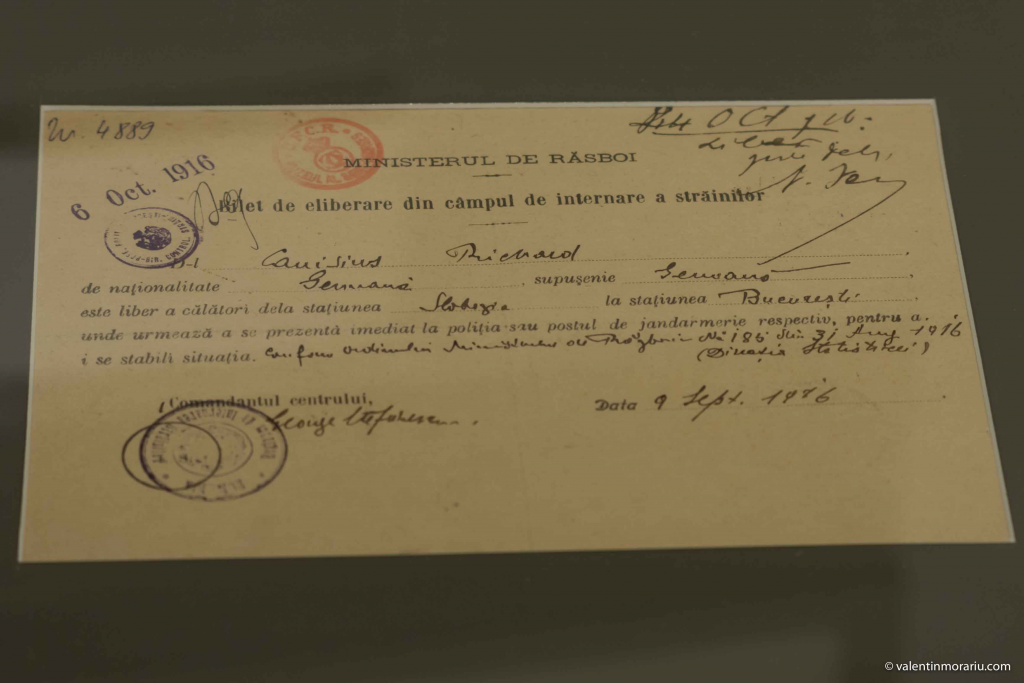 Nr. 4889
OCT 916
6 Oct. 1916
MINISTERUL DE RĂSBOI
Bilet de eliberare din câmpul de internare a străinilor
D-l Canisius Richard
de naționalitate Germană, supușenie Germană
este liber a călători dela stațiunea Slobozia la stațiunea București
unde urmează a se prezentà imediat la poliția sau postul de jandarmerie respectiv, pentru a.
i se stabili situația. Conform ordinului Ministerului de Războiu No 186 din 31 Aug 1916
(Direcția Statistica)
Comandantul centrului,
George Ștefănescu
Data 9 Sept. 1916
© valentinmorariu.com